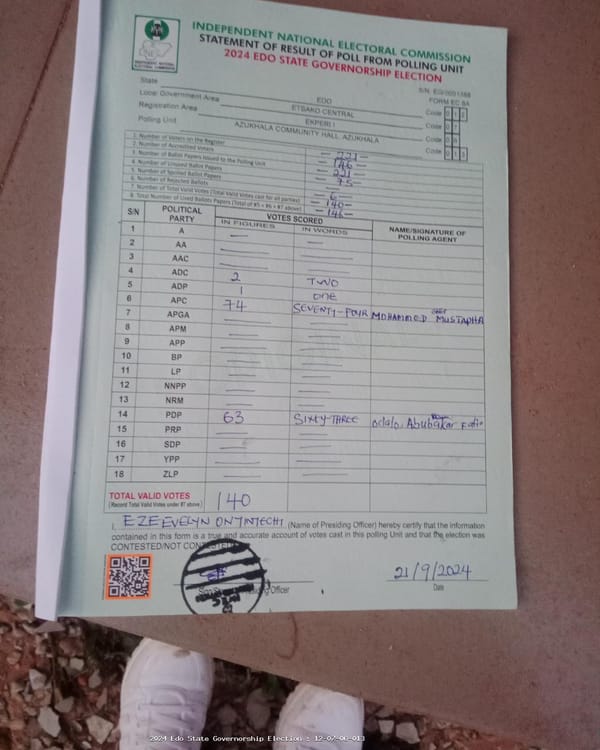 INDEPENDENT NATIONAL ELECTORAL COMMISSION
STATEMENT OF RESULT OF POLL FROM POLLING UNIT
2024 EDO STATE GOVERNORSHIP ELECTION
FORM EC 8A
State EDO Code 12
Local Government Area ETSAKO CENTRAL Code 07
Registration Area EKPERI I Code
Polling Unit AZUKHALA COMMUNITY HALL, AZUKHALA Code 013
1. Number of Voters on the Register 221
2. Number of Accredited Voters 146
3. Number of Ballot Papers Issued to the Polling Unit 221
4. Number of Unused Ballot Papers 75
5. Number of Spoiled Ballot Papers —
6. Number of Rejected Ballots 6
7. Number of Total Valid Votes (Total Valid Votes cast for all parties) 140
8. Total Number of Used Ballots Papers (Total of #5 + #6 + #7 above) 146
S/N POLITICAL PARTY VOTES SCORED NAME/SIGNATURE OF POLLING AGENT
IN FIGURES IN WORDS
1 A — —
2 AA — —
3 AAC — —
4 ADC 2 TWO
5 ADP 1 one
6 APC 74 SEVENTY-FOUR MOHAMMED MUSTAPHA
7 APGA — —
8 APM — —
9 APP — —
10 BP — —
11 LP — —
12 NNPP — —
13 NRM — —
14 PDP 63 SIXTY-THREE Abubakar
15 PRP — —
16 SDP — —
17 YPP — —
18 ZLP — —
TOTAL VALID VOTES 140
(Record Total Valid Votes under #7 above)
I, EZE EVELYN ONYINYECHI (Name of Presiding Officer) hereby certify that the information
contained in this form is a true and accurate account of votes cast in this polling Unit and that the election was
CONTESTED/NOT CONTESTED
21/9/2024
Officer Date
2024 Edo State Governorship Election : 12-07-06-013